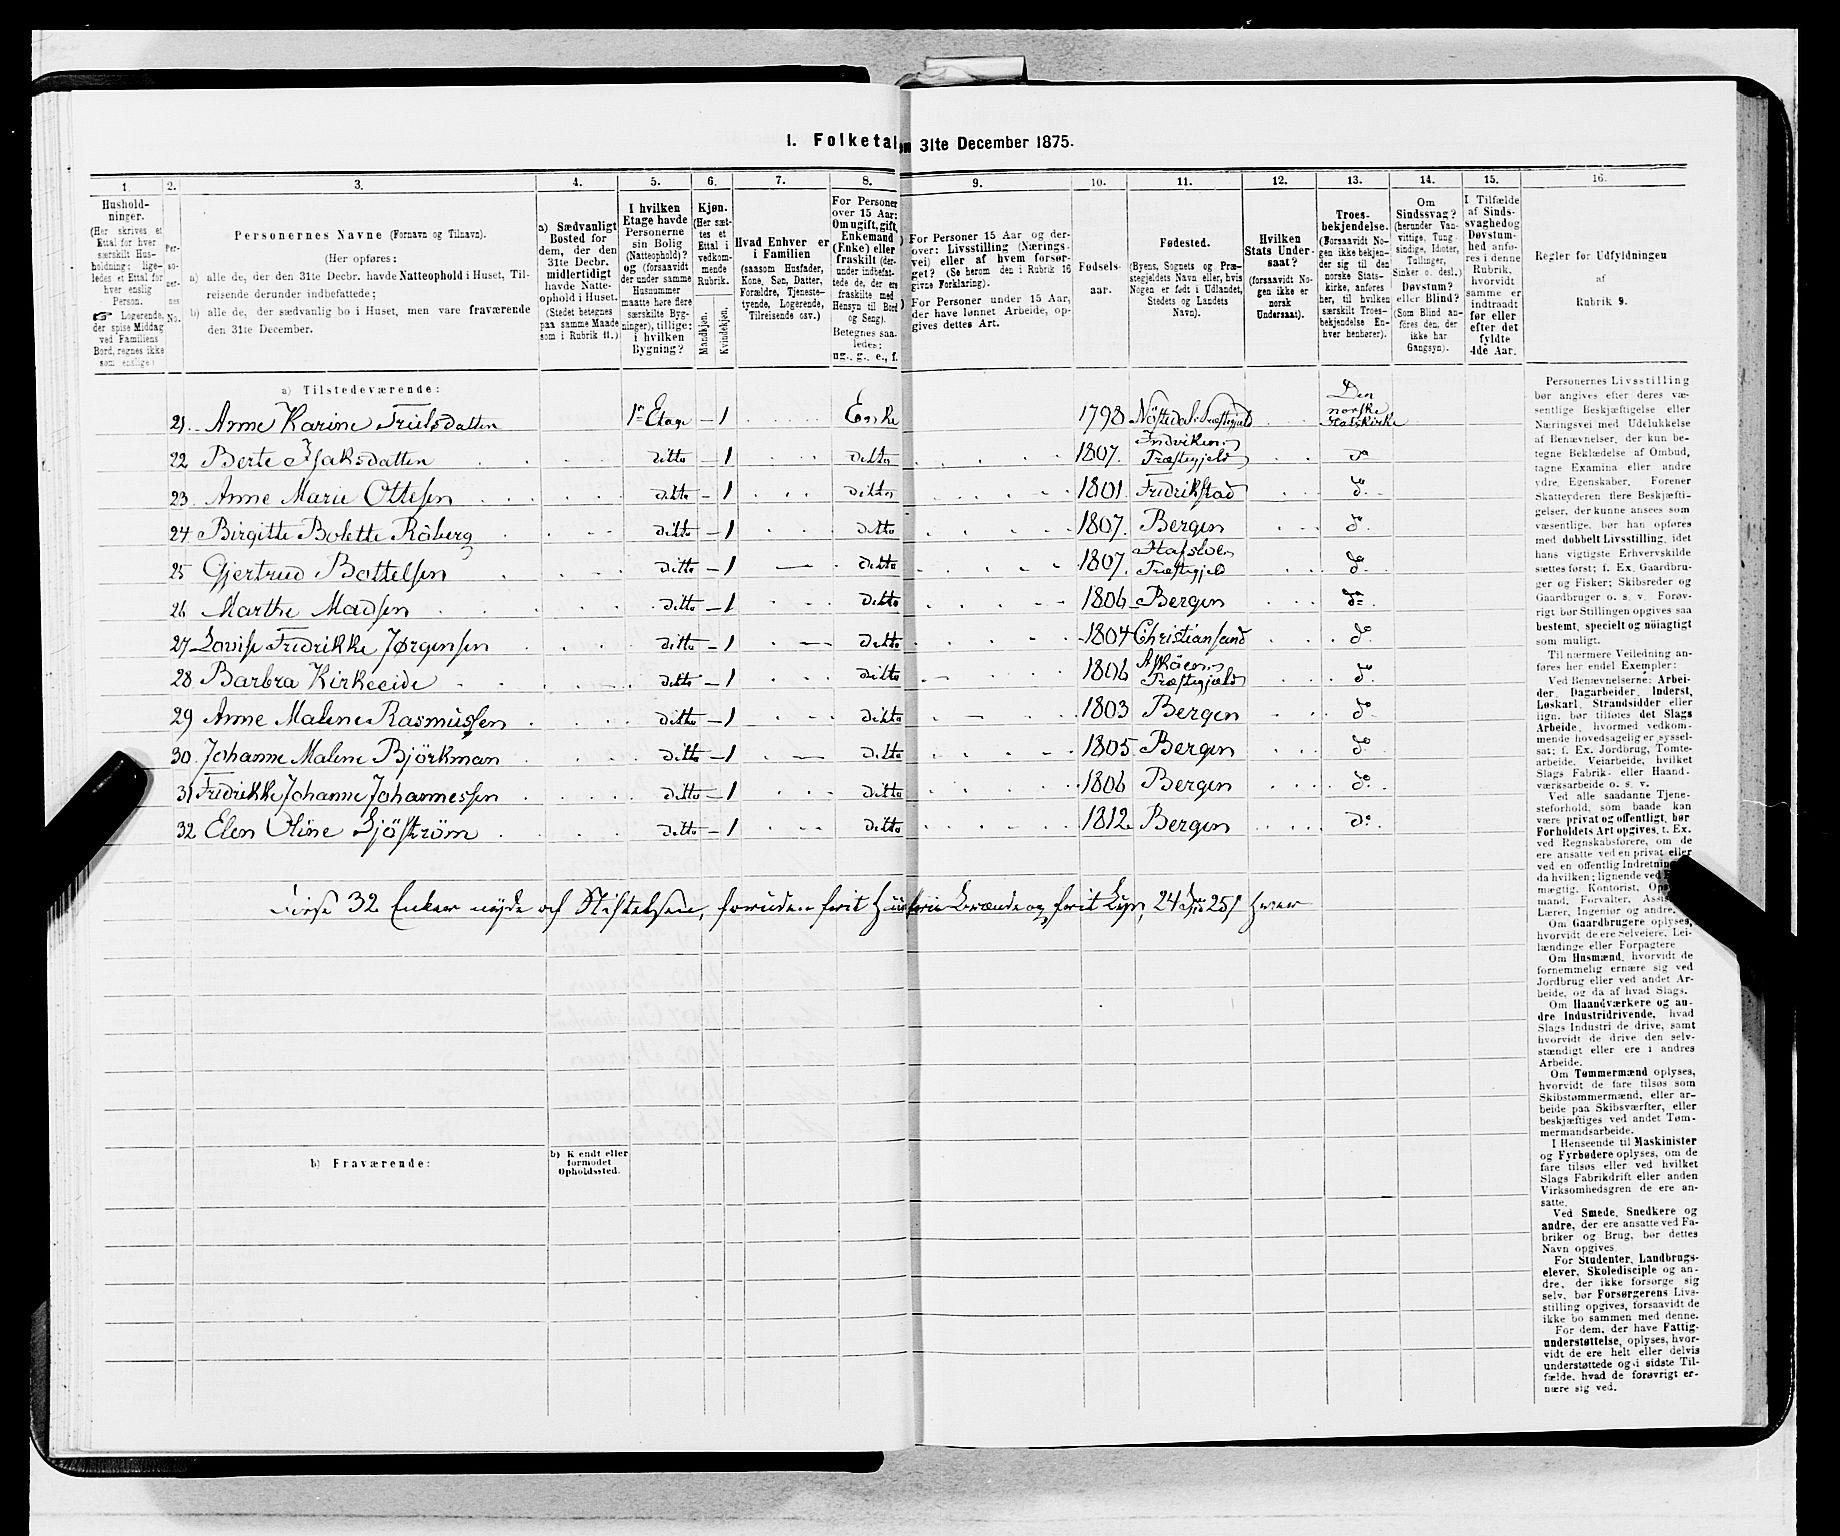 1. Folketal
om 31te December 1875.
1. 2. 3. 4. 5. 6. 7. 8. 9. 10. 11. 12. 13. 14. 15. 16.
Hushold-
ninger.
(Her skrives et
Ettal for hver
særskilt Hus-
holdning; lige-
ledes et Ettal for
hver enslig
Person.
☞ Logerende,
der spise Middag
ved Familiens
Bord, regnes ikke
som enslige)
Per-
so-
ner-
nes
No.
Personernes Navne (Fornavn og Tilnavn).
(Her opføres:
a) alle de, der den 31te Decbr. havde Natteophold i Huset, Til-
reisende derunder indbefattede;
b) alle de, der sædvanlig bo i Huset, men vare fraværende
den 31te December.
a) Sædvanligt
Bosted for
dem, der den
31te Decbr.
midlertidigt
havde Natte-
ophold i Huset.
(Stedet betegnes
paa samme Maade
som i Rubrik 11.)
I hvilken
Etage havde
Personerne
sin Bolig
(Natteophold)?
og (forsaavidt
der under samme
Husnummer
maatte høre flere
særskilte Byg-
ninger), tillige:
i hvilken
Bygning?
Kjøn.
(Her sæt-
tes et
Ettal i
vedkom-
mende
Rubrik.
Mandkjøn.
Kvindekjøn.
Hvad Enhver er
i Familien
(saasom Husfader,
Kone, Søn, Datter,
Forældre, Tjeneste-
tyende, Logerende,
Tilreisende osv.)
For Personer
over 15 Aar:
Om ugift, gift,
Enkemand
(Enke) eller
fraskilt (der-
under indbefat-
tede de, der ere
fraskilte med
Hensyn til Bord
og Seng).
Betegnes saa-
ledes:
ug., g., e., f.
For Personer 15 Aar og der-
over: Livsstilling (Nærings-
vei) eller af hvem forsør-
get? (Se herom den i Rubrik 16
givne Forklaring).
For Personer under 15 Aar,
der have lønnet Arbeide, op-
gives dettes Art.
Fødsels-
aar.
Fødested.
(Byens, Sognets og Præ-
stegjeldets Navn eller, hvis
Nogen er født i Udlandet,
Stedets og Landets
Navn).
Hvilken
Stats Under-
saat?
(forsaavidt No-
gen ikke er
norsk
Undersaat).
Troes-
bekjendelse.
(Forsaavidt No-
gen ikke bekjen-
der sig til den
norske Stats-
kirke, anføres
her, til hvilken
særskilt Troes-
bekjendelse En-
hver henhører).
Om
Sindssvag?
(herunder Van-
vittige, Tung
sindige, Idioter,
Tullinger,
Sinker o. desl.)
Døvstum?
eller Blind?
(Som Blind an-
føres den, der
ikke har
Gangsyn).
I Tilfælde
af Sinds-
svaghed og
Døvstum-
hed anfø-
res i denne
Rubrik,
hvorvidt
samme er
indtraadt
før eller
efter det
fyldte
4de Aar.
Regler for Udfyldningen
af
Rubrik 9.
a) Tilstedeværende:
21. Anne Karine Trulsdatten 1ste Etage 1 Enke 1798 Præstegjeld Den norske Statskirke
22 Berte Isaksdatten ditto 1 ditto 1807. Indvikens Præstegjeld do
23 Anne Marie Ottesen ditto 1 ditto 1801. Fredrikstad do
24 Birgitte Bolette Röberg ditto 1 ditto 1807. Bergen do
25 Gjertrud Bottelsen ditto 1 ditto 1807. Hafsloe Præstegjeld do
26 Marthe Madsen ditto 1 ditto 1806 Bergen do
27 Lovise Fredrikke Jørgensen ditto 1 ditto 1804 Christiansand do
28 Barbra Kirkeeide ditto 1 ditto 1806 Asköens Præstegjeld do
29 Anne Malene Rasmussen ditto 1 ditto 1803 Bergen do
30 Johanne Malene Bjørkman ditto 1 ditto 1805 Bergen do
31 Fredrikke Johanne Johannessen ditto 1 ditto 1806 Bergen do
32 Elen Oline Sjöström ditto 1 ditto 1812 Bergen do
Disse 32 Enker nyde af Stiftelsen, foruden frit Huus, frie Brænde og frit Lys, 24 25 hver
b) Fraværende:
b) Kjendt eller
formodet
Opholdssted.
Personernes Livsstilling
bør angives efter deres væ-
sentlige Beskjæftigelse eller
Næringsvei med Udelukkelse
af Benævnelser, der kun be-
tegne Beklædelse af Ombud,
tagne Examina eller andre
ydre Egenskaber. Forener
Skatteyderen flere Beskjæfti-
gelser, der kunne ansees som
væsentlige, bør han opføres
med dobbelt Livsstilling, idet
hans vigtigste Erhvervskilde
sættes først; f. Ex. Gaardbru-
ger og Fisker; Skibsreder og
Gaardbruger o. s. v. Forøv-
rigt bør Stillingen opgives saa
bestemt, specielt og nöiagtigt
som muligt.
Til nærmere Veiledning an-
føres her endel Exempler:
Ved Benævnelserne: Arbei-
der, Dagarbeider, Inderst,
Løskarl, Strandsidder eller
lign. bør tilføies det Slags
Arbeide, hvormed vedkom-
mende hovedsagelig er syssel-
sat; f. Ex. Jordbrug, Tomte-
arbeide, Veiarbeide, hvilket
Slags Fabrik- eller Haand-
værksarbeide o. s. v.
Ved alle saadanne Tjene-
steforhold, som baade kan
være privat og offentligt, bør
Forholdets Art opgives, t. Ex.
ved Regnskabsførere, om de
ere ansatte ved en privat eller
ved en offentlig Indretning og
da hvilken; lignende ved
mægtig, Kontorist,
mand, Forvalter,
Lærer, Ingeniør og andre.
Om Gaardbrugere oplyses,
hvorvidt de ere Selveiere, Lei-
lændinge eller Forpagtere
Om Husmænd, hvorvidt de
fornemmelig ernære sig ved
Jordbrug eller ved andet Ar-
beide, og da af hvad Slags.
Om Haandværkere og an-
dre Industridrivende, hvad
Slags Industri de drive, samt
hvorvidt de drive den selv-
stændigt eller ere i andres
Arbeide.
Om Tømmermænd oplyses,
hvorvidt de fare tilsøs som
Skibstømmermænd, eller ar-
beide paa Skibsværfter, eller
beskjæftiges ved andet Tøm-
mermandsarbeide.
I Henseende til Maskinister
og Fyrbødere oplyses, om de
fare tilsøs eller ved hvilket
Slags Fabrikdrift eller anden
Virksomhedsgren de ere an-
satte.
Ved Smede, Snedkere og
andre, der ere ansatte ved Fa-
briker og Brug, bør dettes
Navn opgives
For Studenter, Landbrugs-
elever, Skoledisciple og an-
dre, der ikke forsørge sig
selv, bør Forsørgerens Livs-
stilling opgives, forsaavidt de
ikke bo sammen med denne.
For dem, der have Fattig-
understøttelse, oplyses, hvor-
vidt de ere helt eller delvis
understøttede og i sidste Til-
fælde, hvad de forøvrigt er-
nære sig ved.